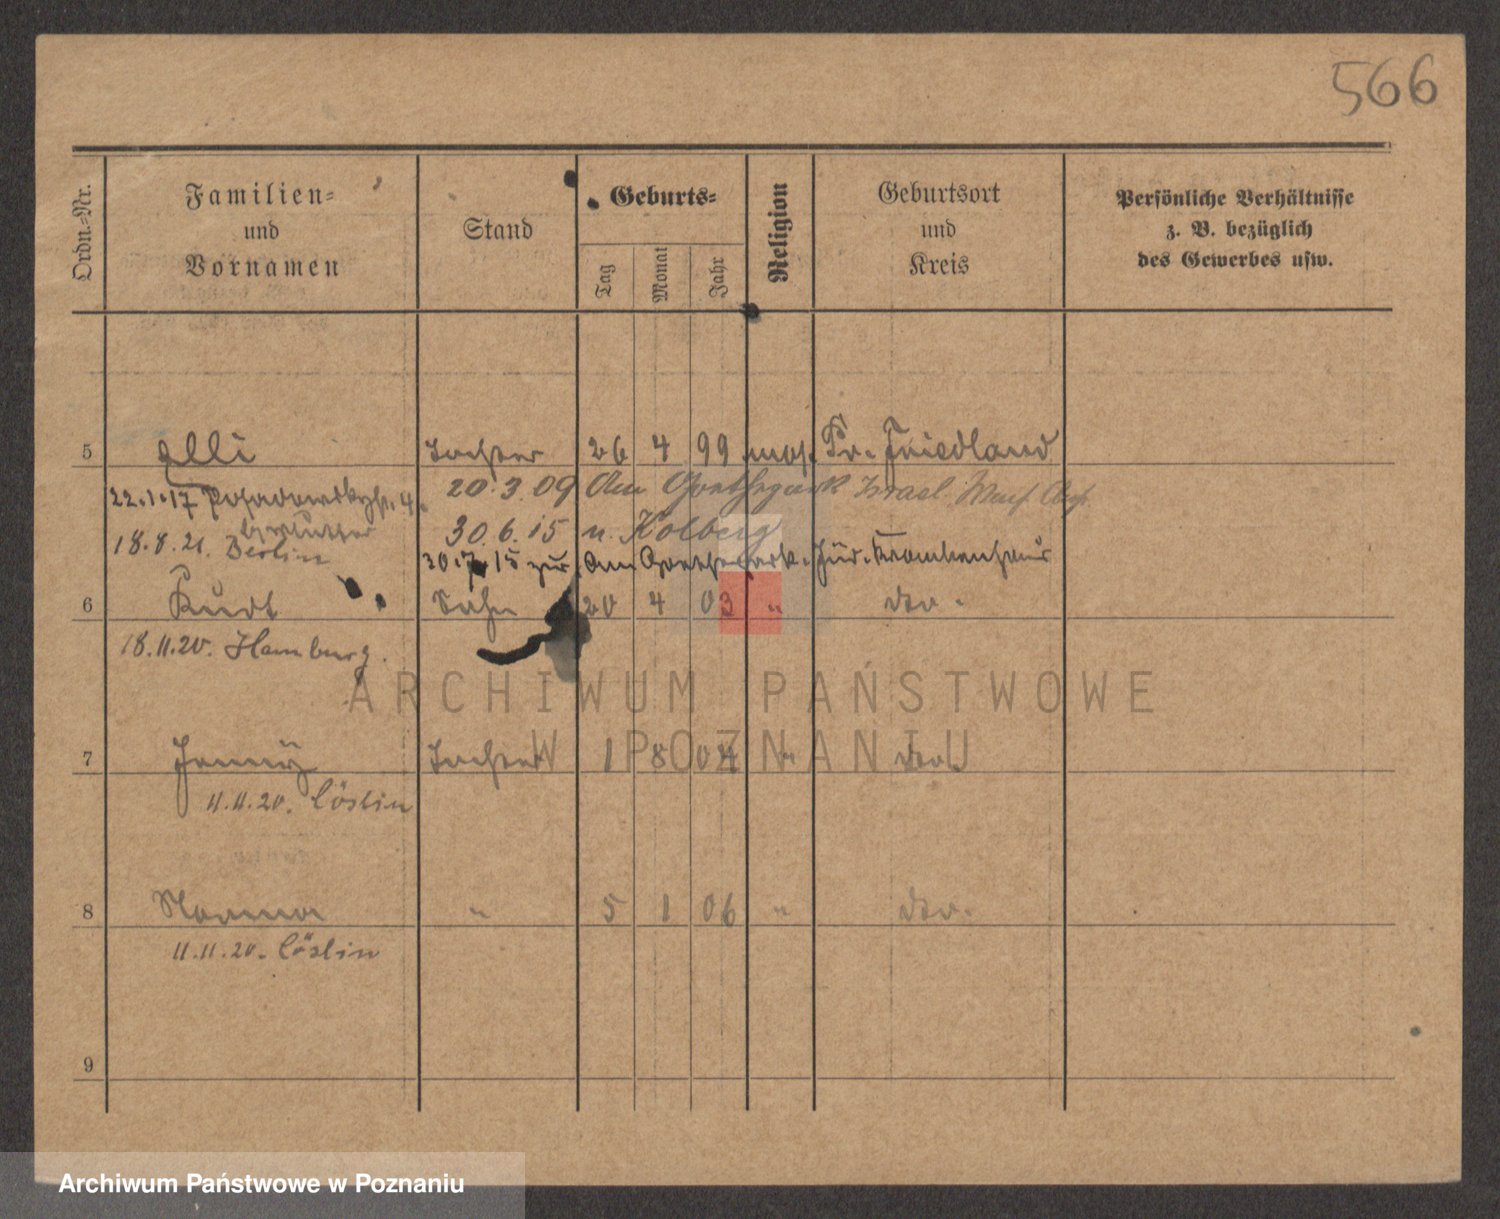 566
Ordn.-Nr.
Familien-
und
Vornamen
Stand
Geburts-
Tag
Monat
Jahr
Religion
Geburtsort
und
Kreis
Persönliche Verhältnisse
z. B. bezüglich
des Gewerbes usw.
5 Elli Tochter 26 4 99 mos. Pr. Friedland
22.1.17 Posadowskystr. 4. 20.3.09 Am Israel.
30.6.15 n. Kolberg
18.8.21. Berlin
30.7.15 zur. Am Jüd. Krankenhaus
6 Kurt Sohn 20 4 03 " dto.
18.11.20. Hamburg.
7 Jenny Tochter 1 8 04 " dto.
11.11.20. Cöslin
8 " 5 1 06 " dto.
11.11.20. Cöslin
9
ARCHIWUM PAŃSTWOWE
W POZNANIU
Archiwum Państwowe w Poznaniu